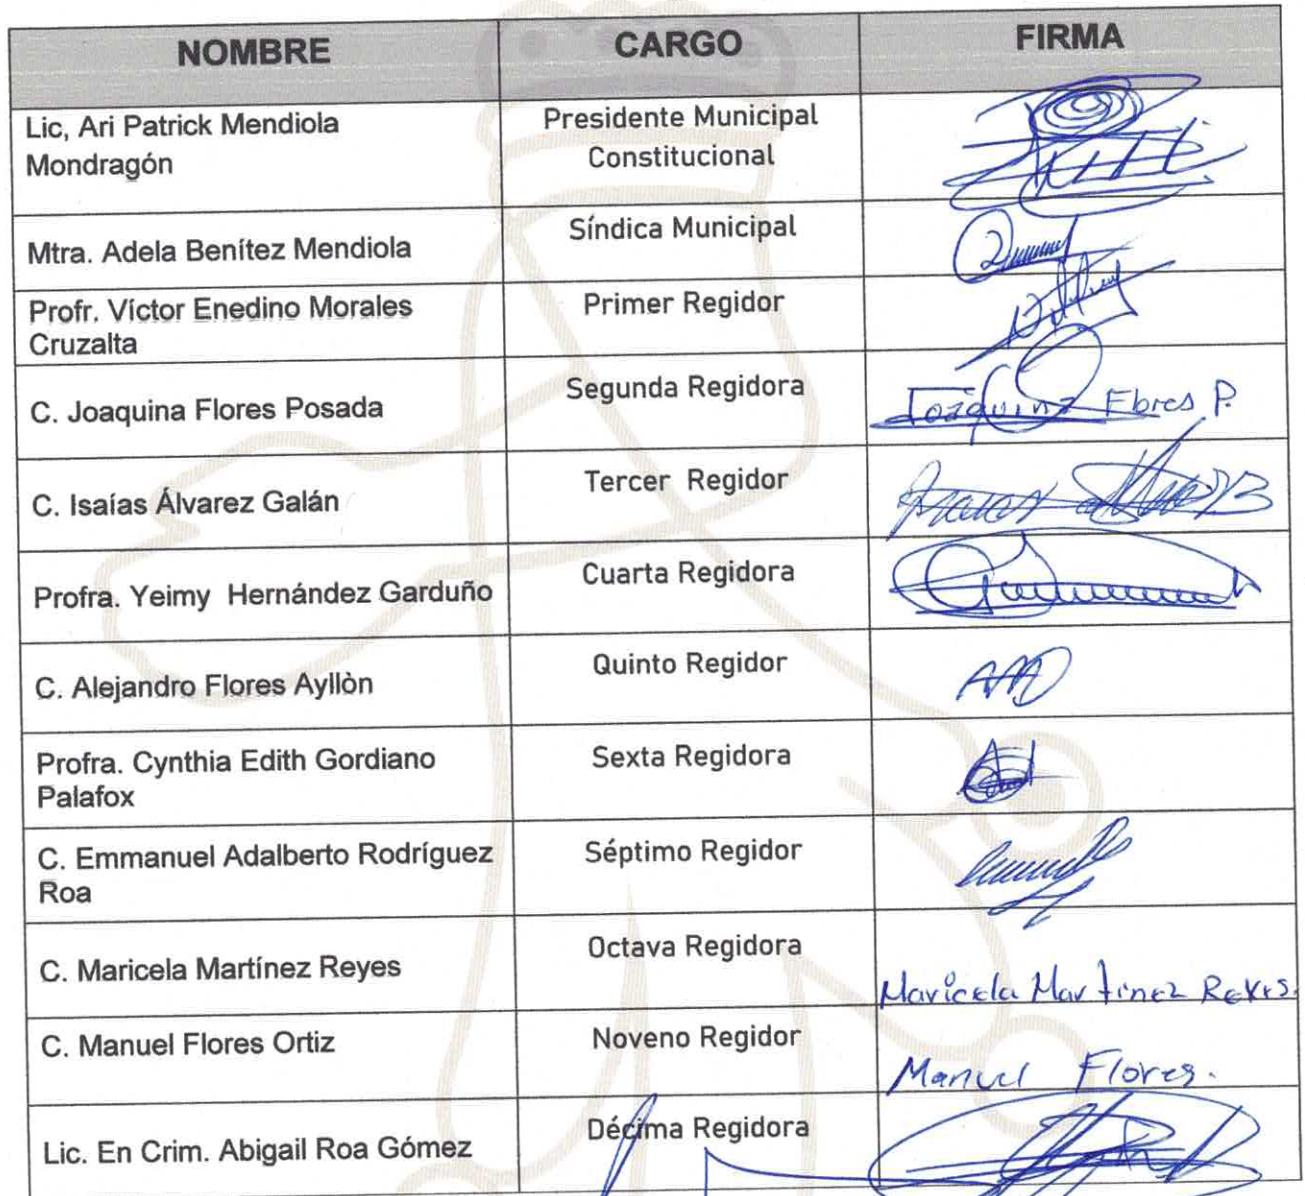 NOMBRE CARGO FIRMA
Lic, Ari Patrick Mendiola
Mondragón
Presidente Municipal
Constitucional
Mtra. Adela Benítez Mendiola
Síndica Municipal
Profr. Víctor Enedino Morales
Cruzalta
Primer Regidor
C. Joaquina Flores Posada
Segunda Regidora
Joaquina Flores P.
C. Isaías Álvarez Galán
Tercer Regidor
Profra. Yeimy Hernández Garduño
Cuarta Regidora
C. Alejandro Flores Ayllòn
Quinto Regidor
Profra. Cynthia Edith Gordiano
Palafox
Sexta Regidora
C. Emmanuel Adalberto Rodríguez
Roa
Séptimo Regidor
C. Maricela Martínez Reyes
Octava Regidora
Maricela Martinez Reyes.
C. Manuel Flores Ortiz
Noveno Regidor
Manuel Flores.
Lic. En Crim. Abigail Roa Gómez
Décima Regidora